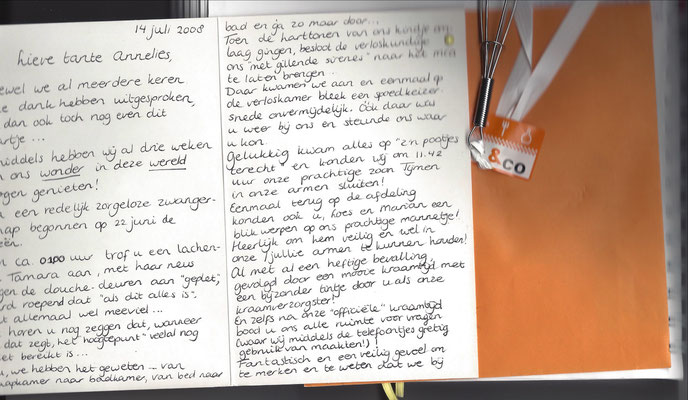 14 juli 2008
lieve tante Annelies,
ewel we al meerdere keren
e dank hebben uitgesproken,
dan ook toch nog even dit
artje ...
middels hebben wij al drie weken
n ons wonder in deze wereld
ogen genieten!
a een redelijk zorgeloze zwanger-
hap begonnen op 22 juni de
eën.
n ca. 0100 uur trof u een lachen-
Tamara aan, met haar neus
gen de douche-deuren aan "geplet",
rd roepend dat "als dit alles is".
t allemaal wel meeviel ...
horen u nog zeggen dat, wanneer
dat zegt, het "hoogtepunt" veelal nog
et bereikt is ...
u, we hebben het geweten ... van
aapkamer naar badkamer, van bed naar
bad en ga zo maar door...
Toen de harttonen van ons kindje om-
laag gingen, besloot de verloskundige
ons "met gillende sirenes" naar het mca
te laten brengen..
Daar kwamen we aan en eenmaal op
de verloskamer bleek een spoedkeizer-
snede onvermijdelijk. Ook daar was
u weer bij ons en steunde ons waar
u kon.
Gelukkig kwam alles op "z'n pootjes
terecht" en konden wij om 11.42
uur onze prachtige zoon Tijmen
in onze armen sluiten!
Eenmaal terug op de afdeling
konden ook u, Loes en Marian een
blik werpen op ons prachtige mannetje!
Heerlijk om hem veilig en wel in
onze / jullie armen te kunnen houden!
Al met al een heftige bevalling,
gevolgd door een mooie kraamtijd met
een bijzonder tintje door u als onze
kraamverzorgster!
En zelfs na onze "officiële" kraamtijd
bood u ons alle ruimte voor vragen
(waar wij middels de telefoontjes gretig
gebruik van maakten!) !
Fantastisch en een veilig gevoel om
te merken en te weten dat we bij
&co